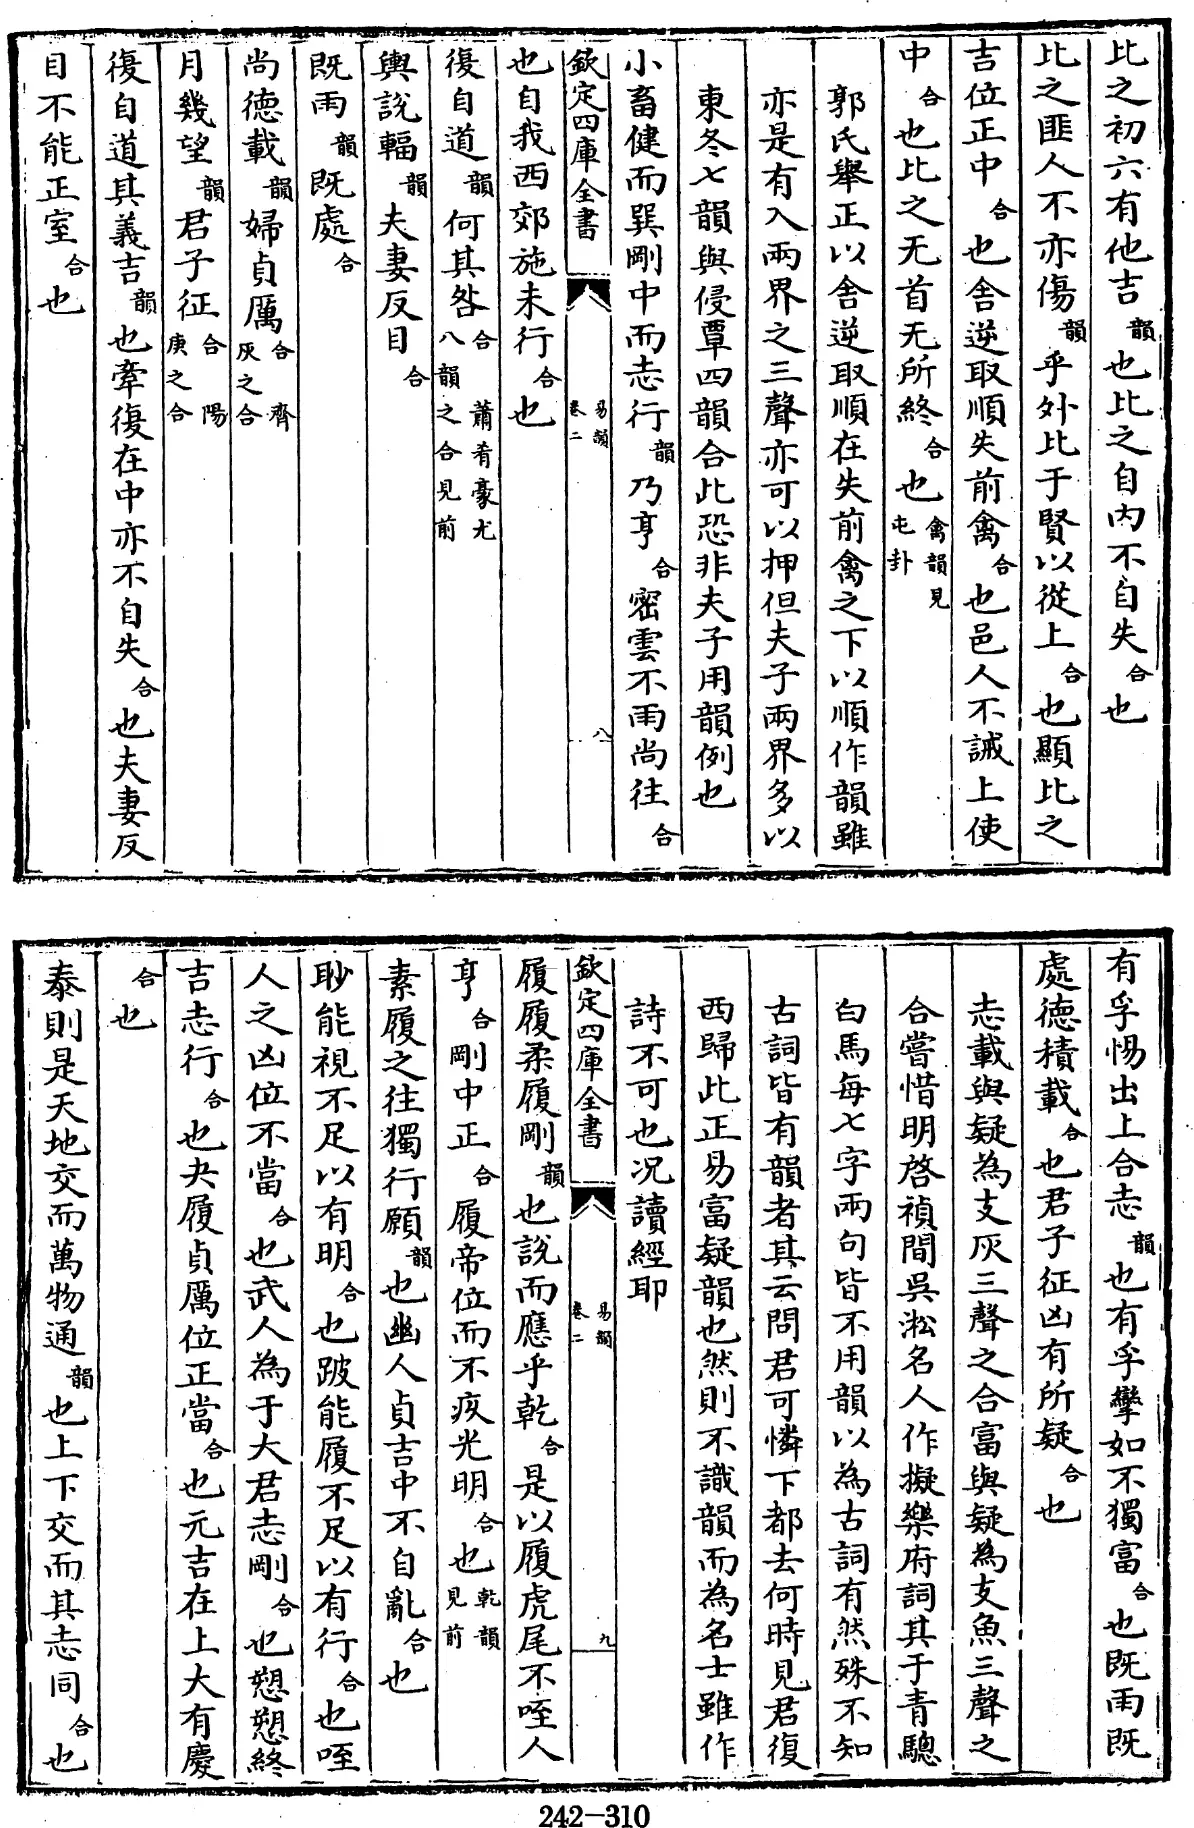 比之初六有他吉韻也比之自内不自失合也
比之匪人不亦傷韻乎外比于賢以從上合也顯比之
吉位正中合也舍逆取順失前禽合也邑人不誡上使
中合也比之无首无所終合也禽韻見屯卦
郭氏舉正以舍逆取順在失前禽之下以順作韻雖
亦是有入兩界之三聲亦可以押但夫子兩界多以
東冬七韻與侵覃四韻合此恐非夫子用韻例也
小畜健而巽剛中而志行韻乃亨合密雲不雨尚往合
欽定四庫全書
易韻
卷二
八
也自我西郊施未行合也
復自道韻何其咎合蕭肴豪尤八韻之合見前
輿說輻韻夫妻反目合
既雨韻既處合
尚德載韻婦貞厲合齊灰之合
月幾望韻君子征合陽庚之合
復自道其義吉韻也牽復在中亦不自失合也夫妻反
目不能正室合也
有孚惕出上合志韻也有孚攣如不獨富合也既雨既
處德積載合也君子征凶有所疑合也
志載與疑為支灰三聲之合富與疑為支魚三聲之
合嘗惜明啓禎間吳淞名人作擬樂府詞其于青驄
白馬每七字兩句皆不用韻以為古詞有然殊不知
古詞皆有韻者其云問君可憐下都去何時見君復
西歸此正易富疑韻也然則不識韻而為名士雖作
詩不可也况讀經耶
欽定四庫全書
易韻
卷二
九
履履柔履剛韻也說而應乎乾合是以履虎尾不咥人
亨合剛中正合履帝位而不疚光明合也乾韻見前
素履之往獨行願韻也幽人貞吉中不自亂合也
眇能視不足以有明合也跛能履不足以有行合也咥
人之凶位不當合也武人為于大君志剛合也愬愬終
吉志行合也夬履貞厲位正當合也元吉在上大有慶
合也
泰則是天地交而萬物通韻也上下交而其志同合也
242-310